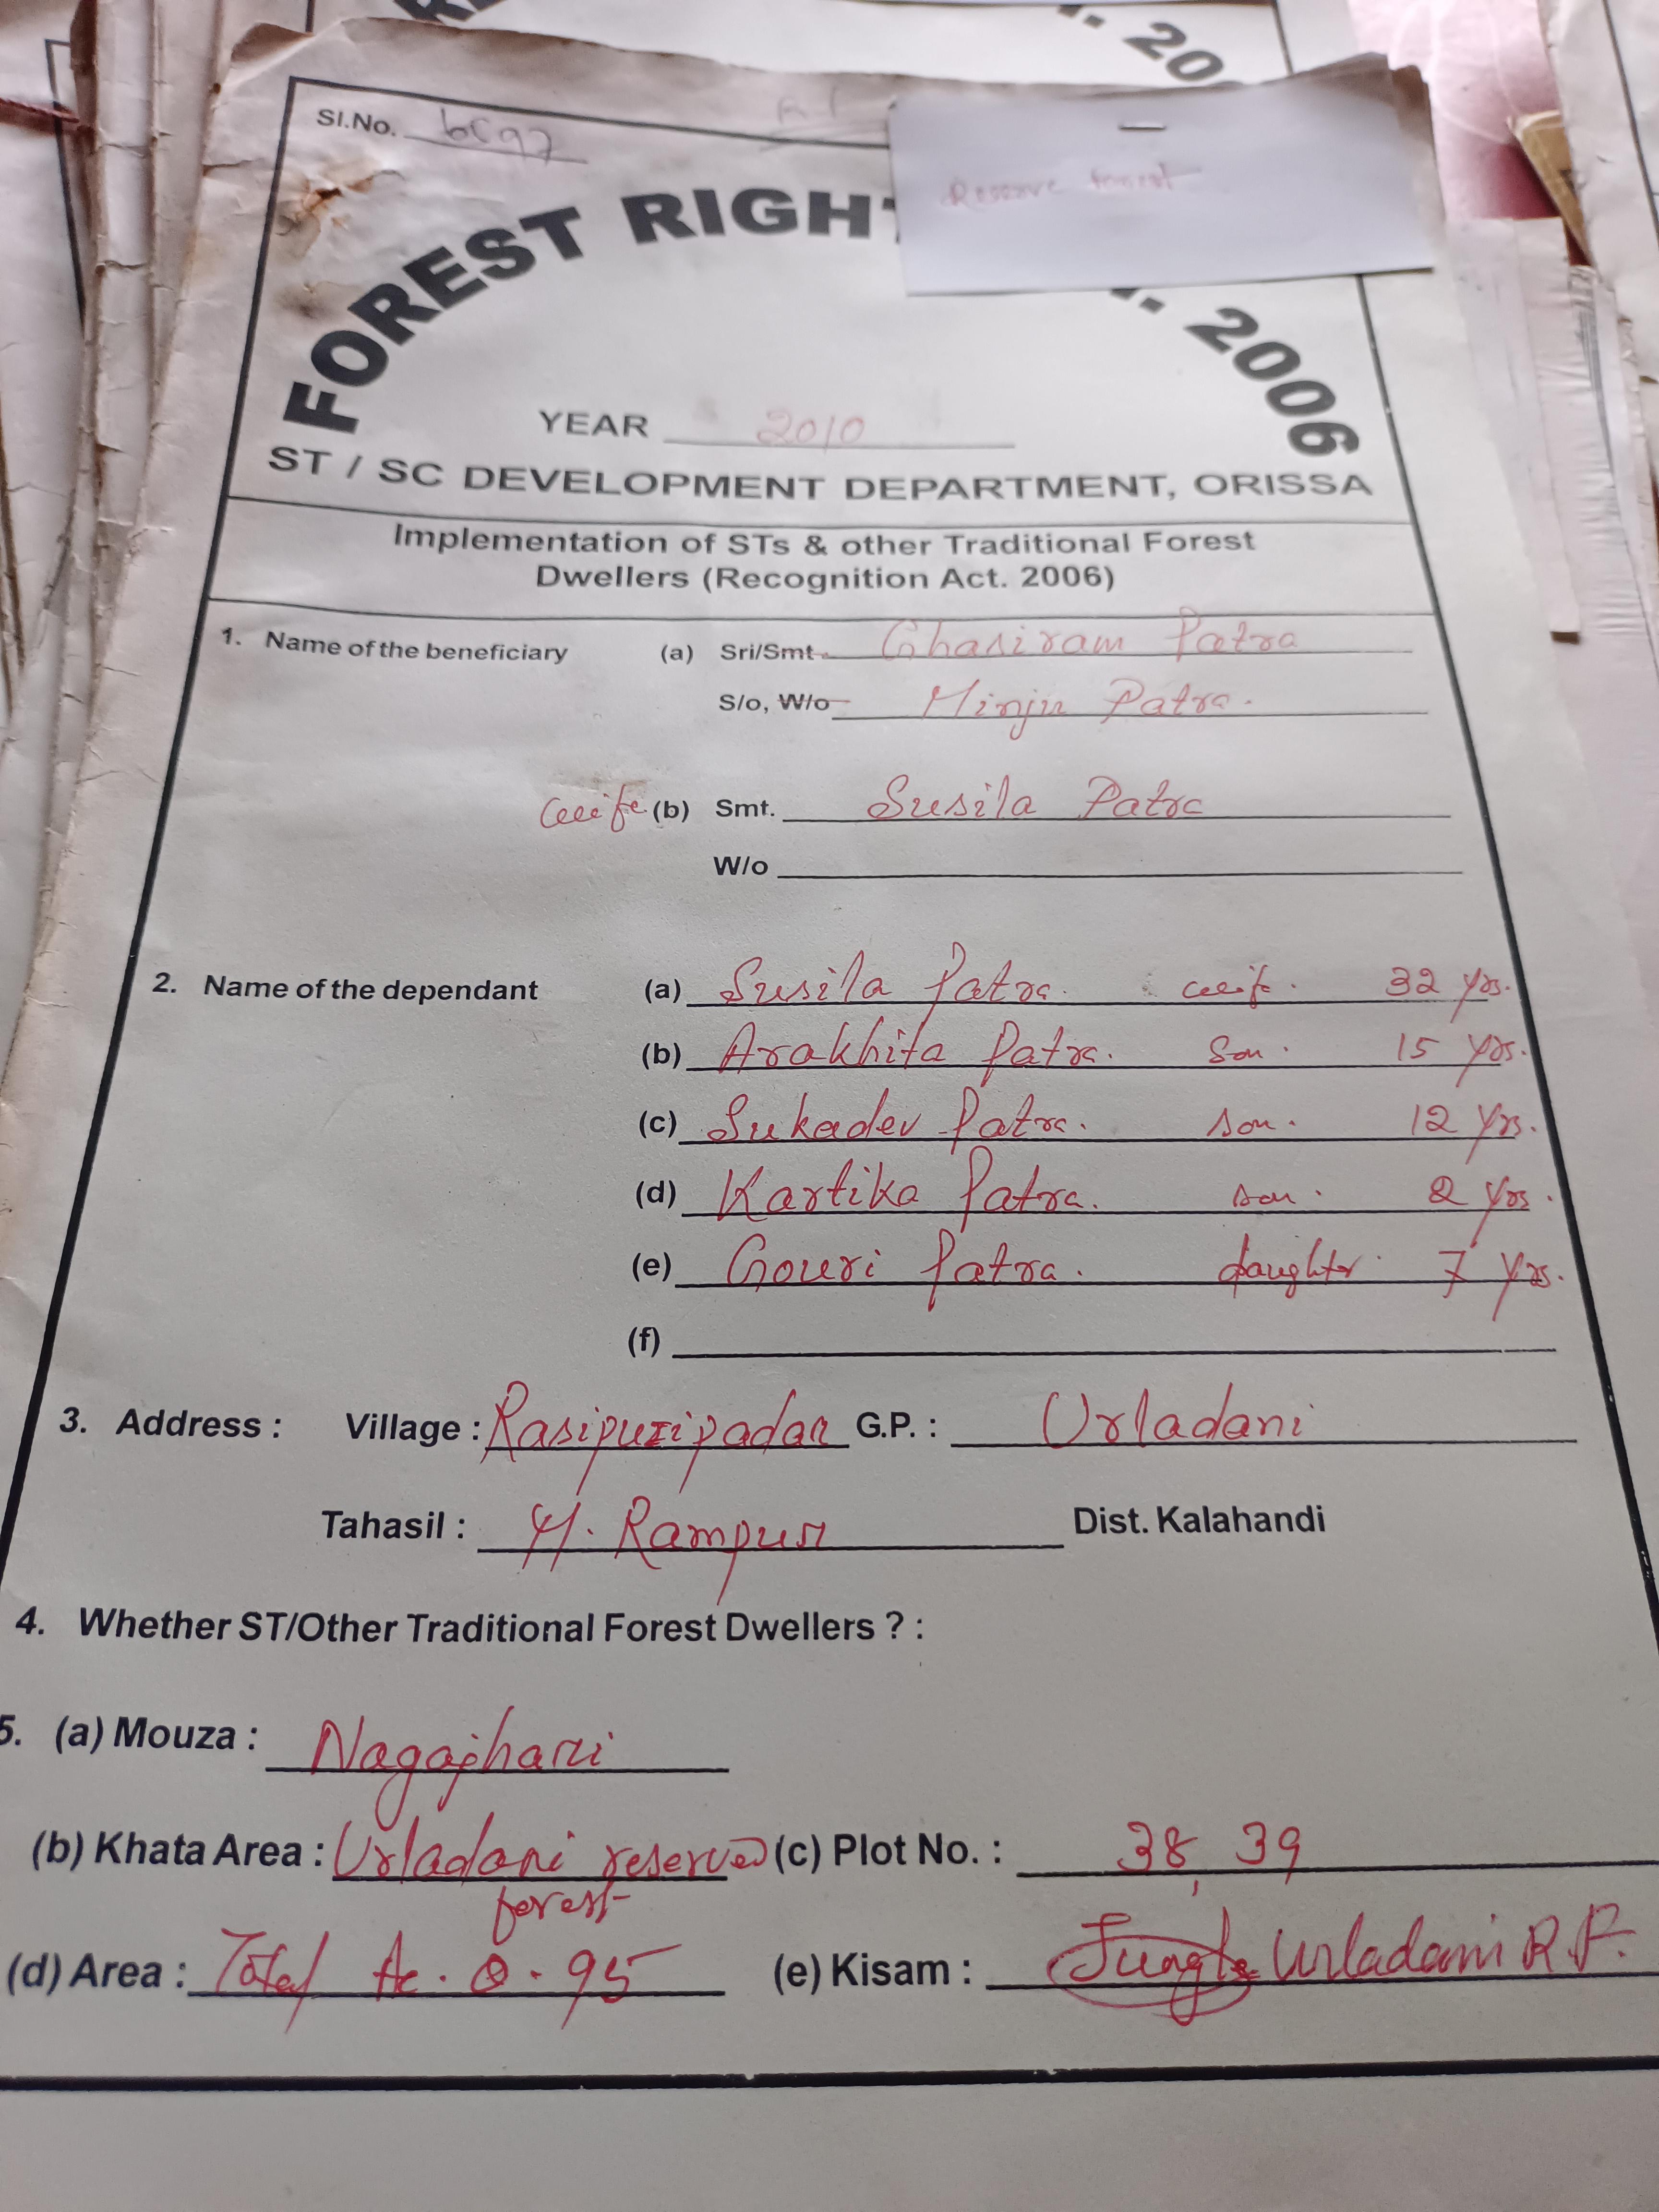 Sl.No. 6c97
R 1
Reserve forest
FOREST RIGHT
. 2006
YEAR 2010
ST / SC DEVELOPMENT DEPARTMENT, ORISSA
Implementation of STs & other Traditional Forest
Dwellers (Recognition Act. 2006)
1. Name of the beneficiary (a) Sri/Smt Ghasiram Patra
S/o, W/o Minju Patra.
wife (b) Smt. Susila Patra
W/o
2. Name of the dependant (a) Susila Patra. wife. 32 yrs.
(b) Arakhita Patra. Son. 15 yrs.
(c) Sukadev Patra. son. 12 yrs.
(d) Kartika Patra. son. 2 yrs.
(e) Gouri Patra. daughter. 7 yrs.
(f)
3. Address : Village : Rasipuripadar G.P. : Urladani
Tahasil : M. Rampur Dist. Kalahandi
4. Whether ST/Other Traditional Forest Dwellers ? :
5. (a) Mouza : Nagajhari
(b) Khata Area : Urladani reserved (c) Plot No. : 38, 39
forest
(d) Area : Total Ac. 0.95 (e) Kisam : Jungle Urladani R.F.